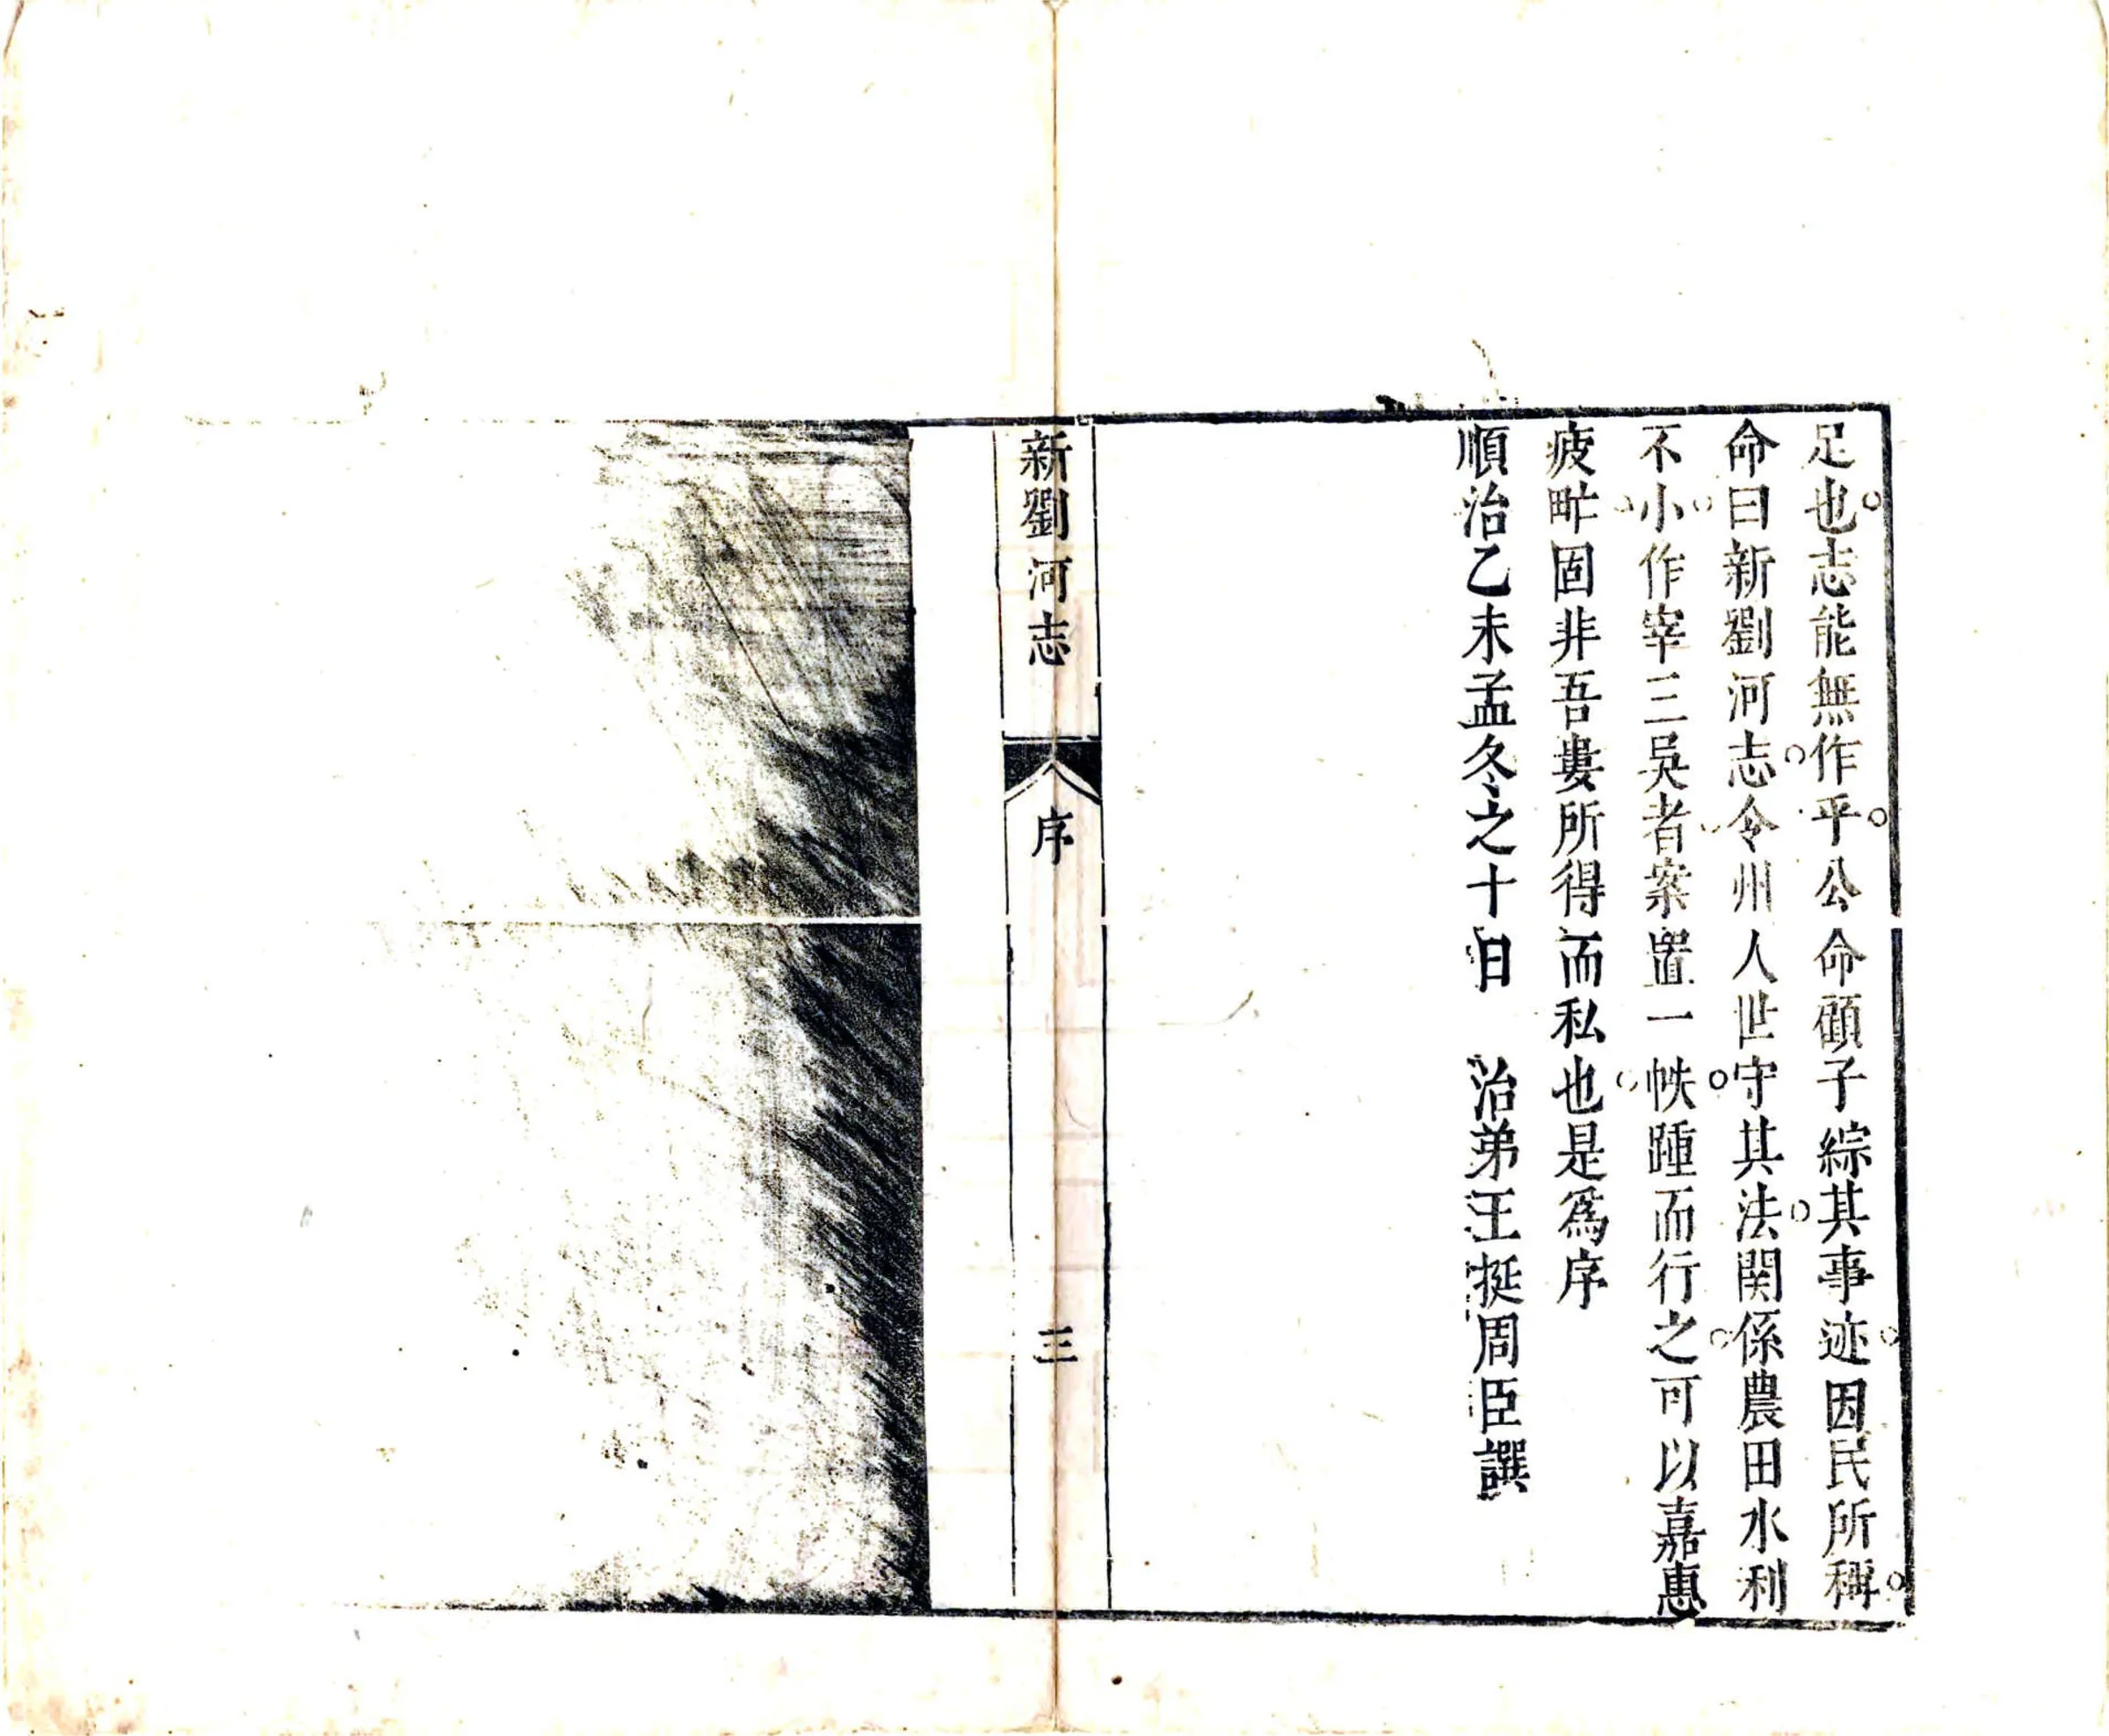 足也志能無作乎公命顧子綜其事迹因民所稱
命曰新劉河志令州人世守其法関係農田水利
不小作宰三吳者案置一帙踵而行之可以嘉惠
疲甿固非吾婁所得而私也是爲序
順治乙未孟冬之十日　治弟王挺周臣譔
新劉河志　序　三